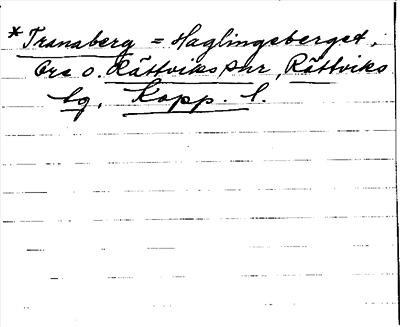 *Tranaberg = Haglingsberget,
Ore o. Rättviks snr, Rättviks
tg, Kopp. l.